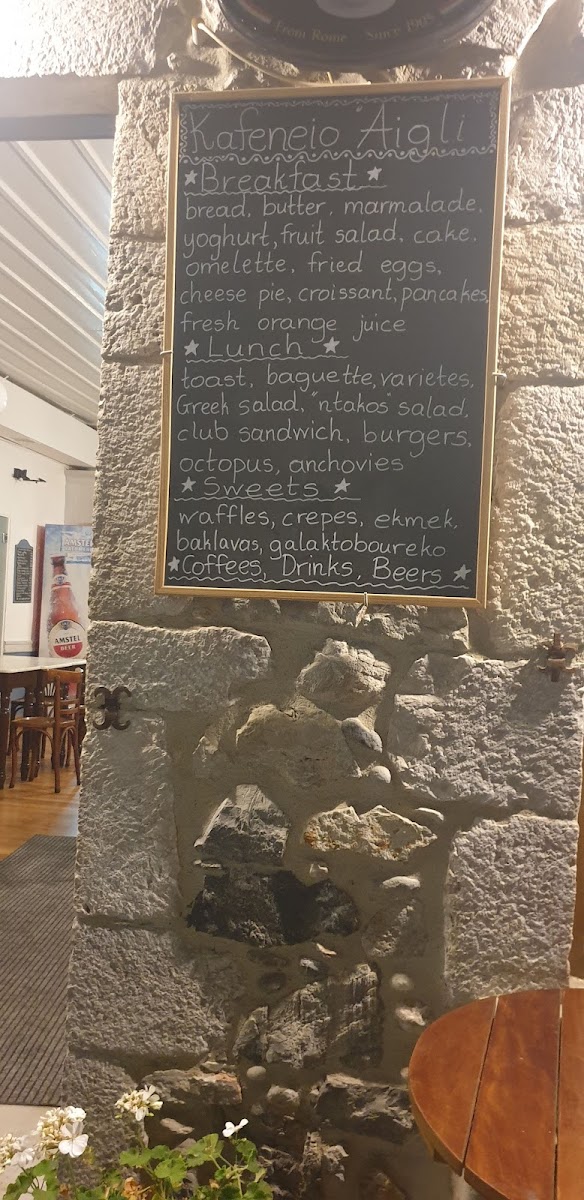 From Rome Since 1905
Kafeneio Aigli
Breakfast
bread, butter, marmalade,
yoghurt, fruit salad, cake,
omelette, fried eggs,
cheese pie, croissant, pancakes,
fresh orange juice
Lunch
toast, baguette, varietes,
Greek salad, "ntakos" salad,
club sandwich, burgers,
octopus, anchovies
Sweets
waffles, crepes, ekmek,
baklavas, galaktoboureko
Coffees, Drinks, Beers
AMSTEL
AMSTEL
BEER